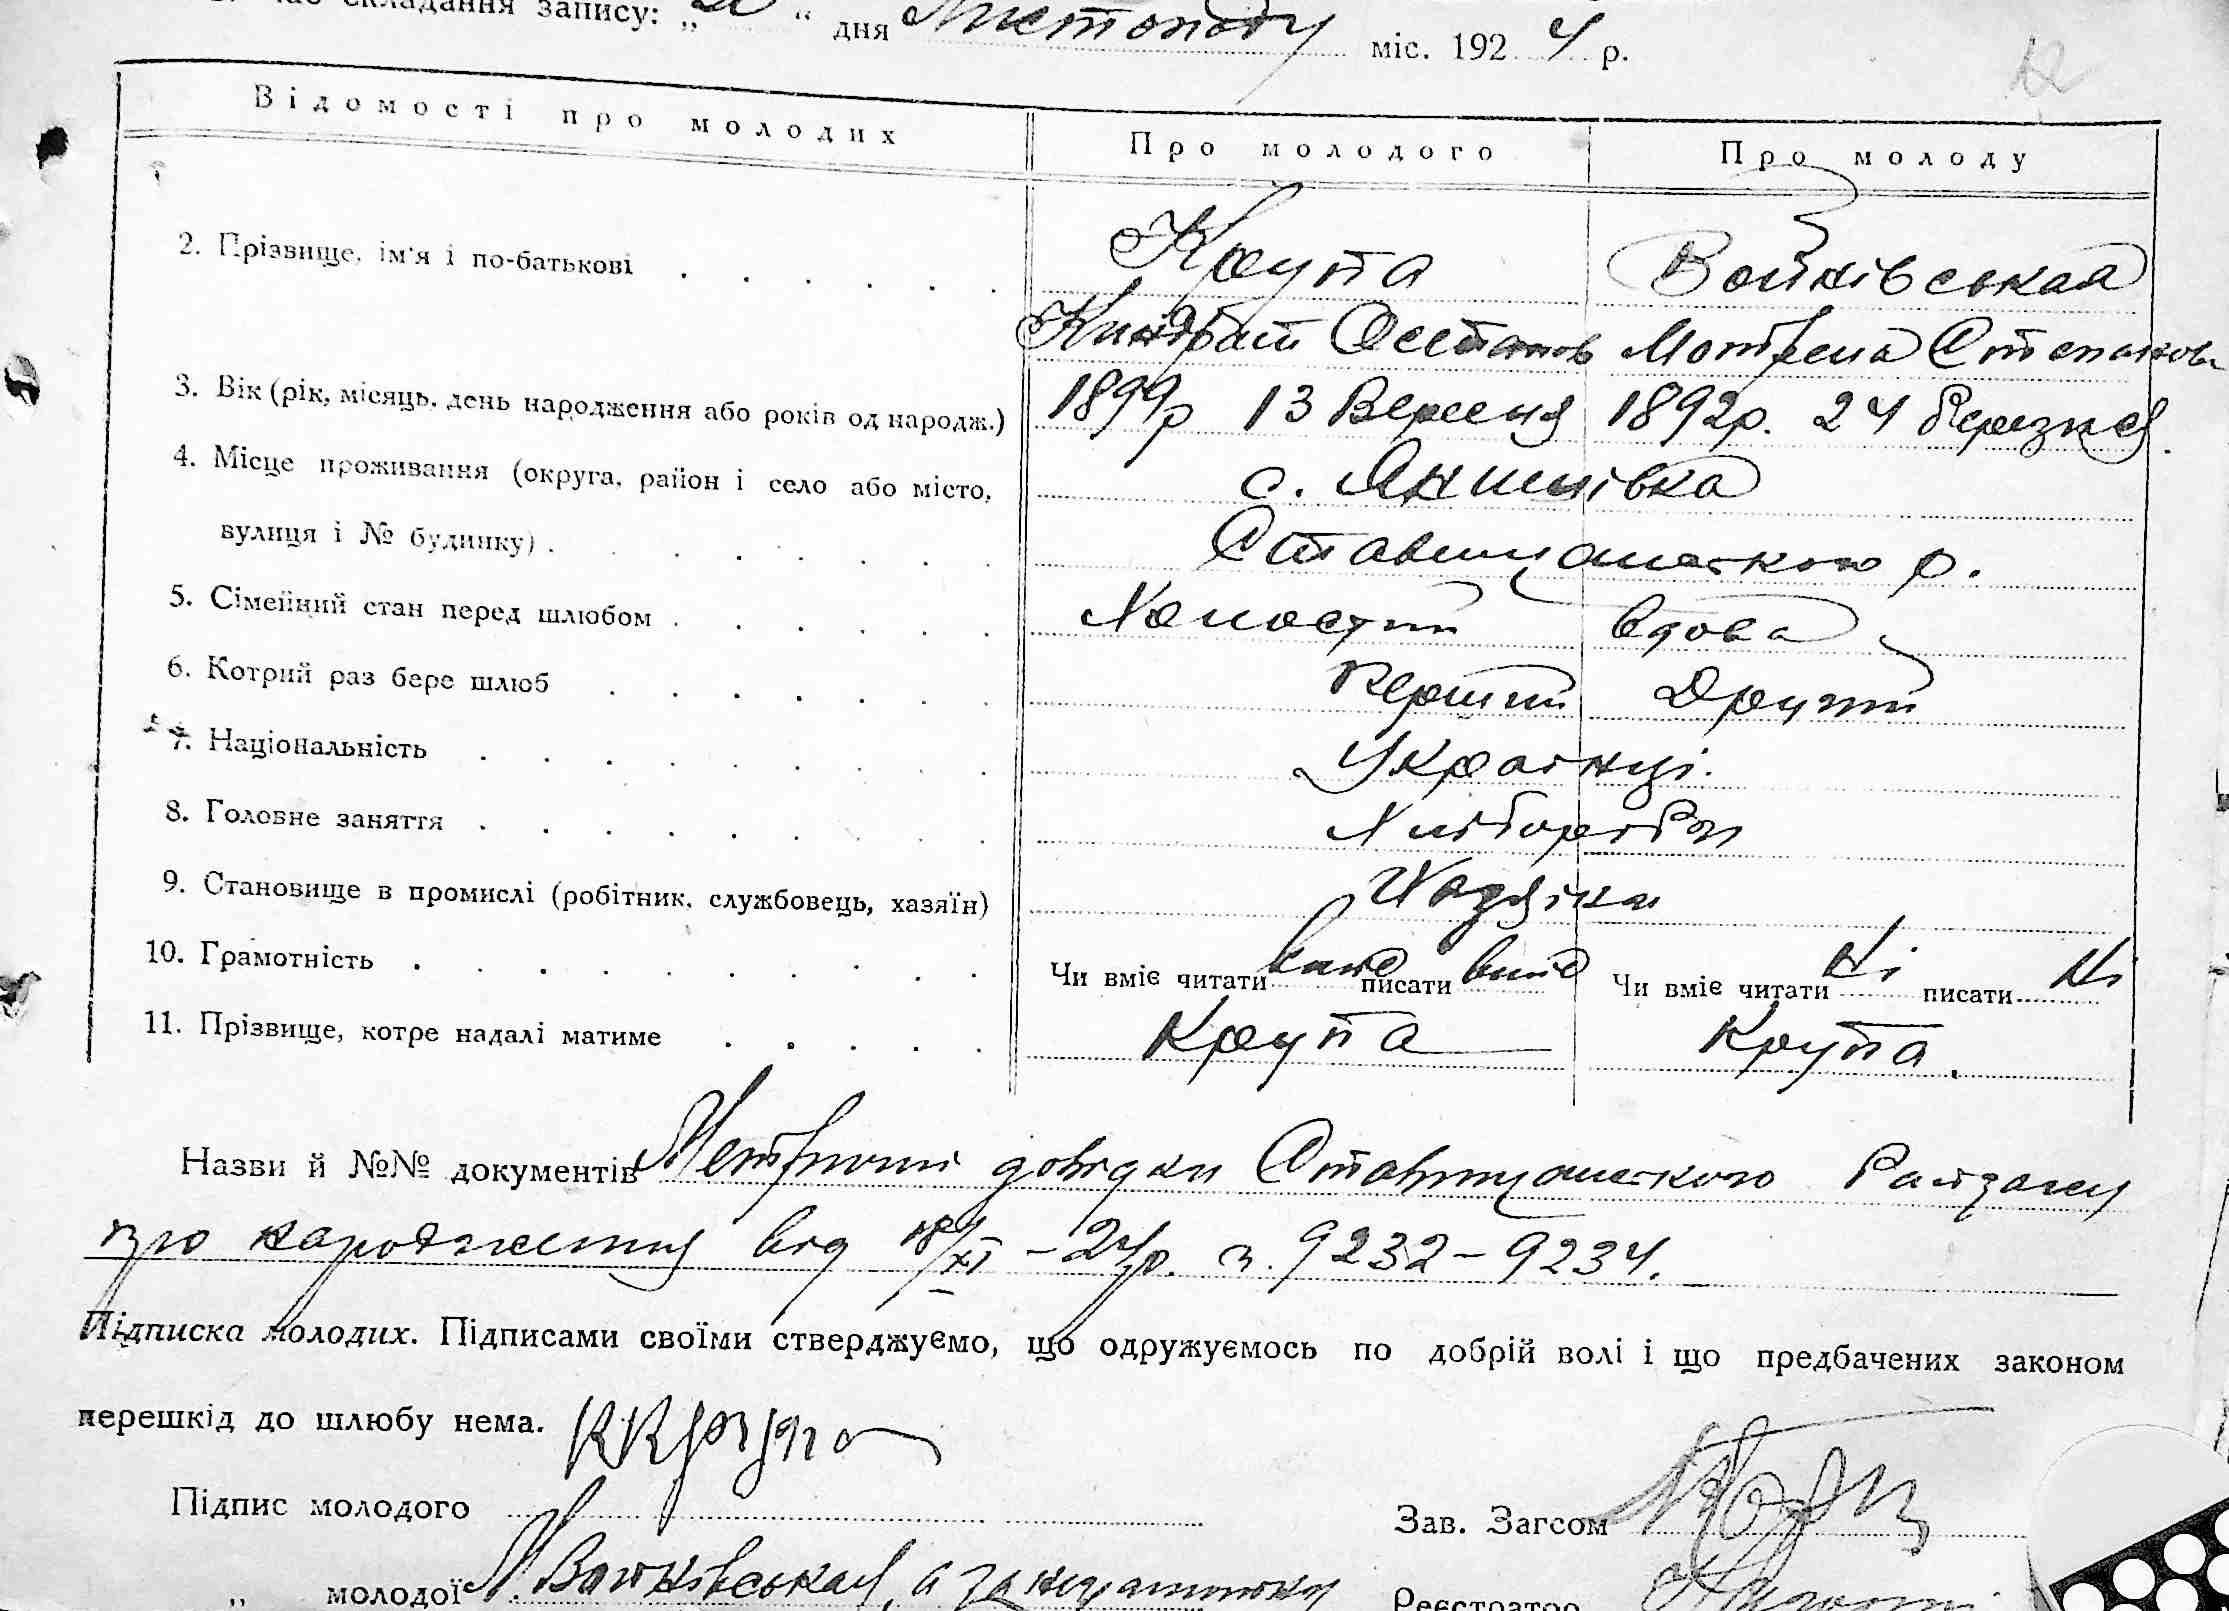 складання запису: „ “ дня Листопаду міс. 1924 р.
Відомості про молодих Про молодого Про молоду
2. Прізвище, ім'я і по-батькові Крупа Войківськая
Кіндрат Остапов Мотрена Степанов
3. Вік (рік, місяць, день народження або років од народж.) 1899р 13 Вересня 1892р. 24 Березня.
4. Місце проживання (округа, район і село або місто, с. Янишівка
вулиця і № будинку) Ставищанського р.
5. Сімейний стан перед шлюбом Холостий вдова
6. Котрий раз бере шлюб Перший Другий
7. Національність Українці.
8. Головне заняття Хлібороби
9. Становище в промислі (робітник, службовець, хазяїн) Хазяїни
10. Грамотність Чи вміє читати вміє писати вміє Чи вміє читати Ні писати Ні
11. Прізвище, котре надалі матиме Крупа Крупа.
Назви й №№ документів Метричні довідки Ставищанського Райзагсу
про народження від 18/XI – 24р. з. 9232 – 9234.
Підписка молодих. Підписами своїми стверджуємо, що одружуємось по добрій волі і що предбачених законом
перешкід до шлюбу нема. ККрупа
Підпис молодого Зав. Загсом
„ молодої М. Войківськая, а за неграмотною
Реєстратор